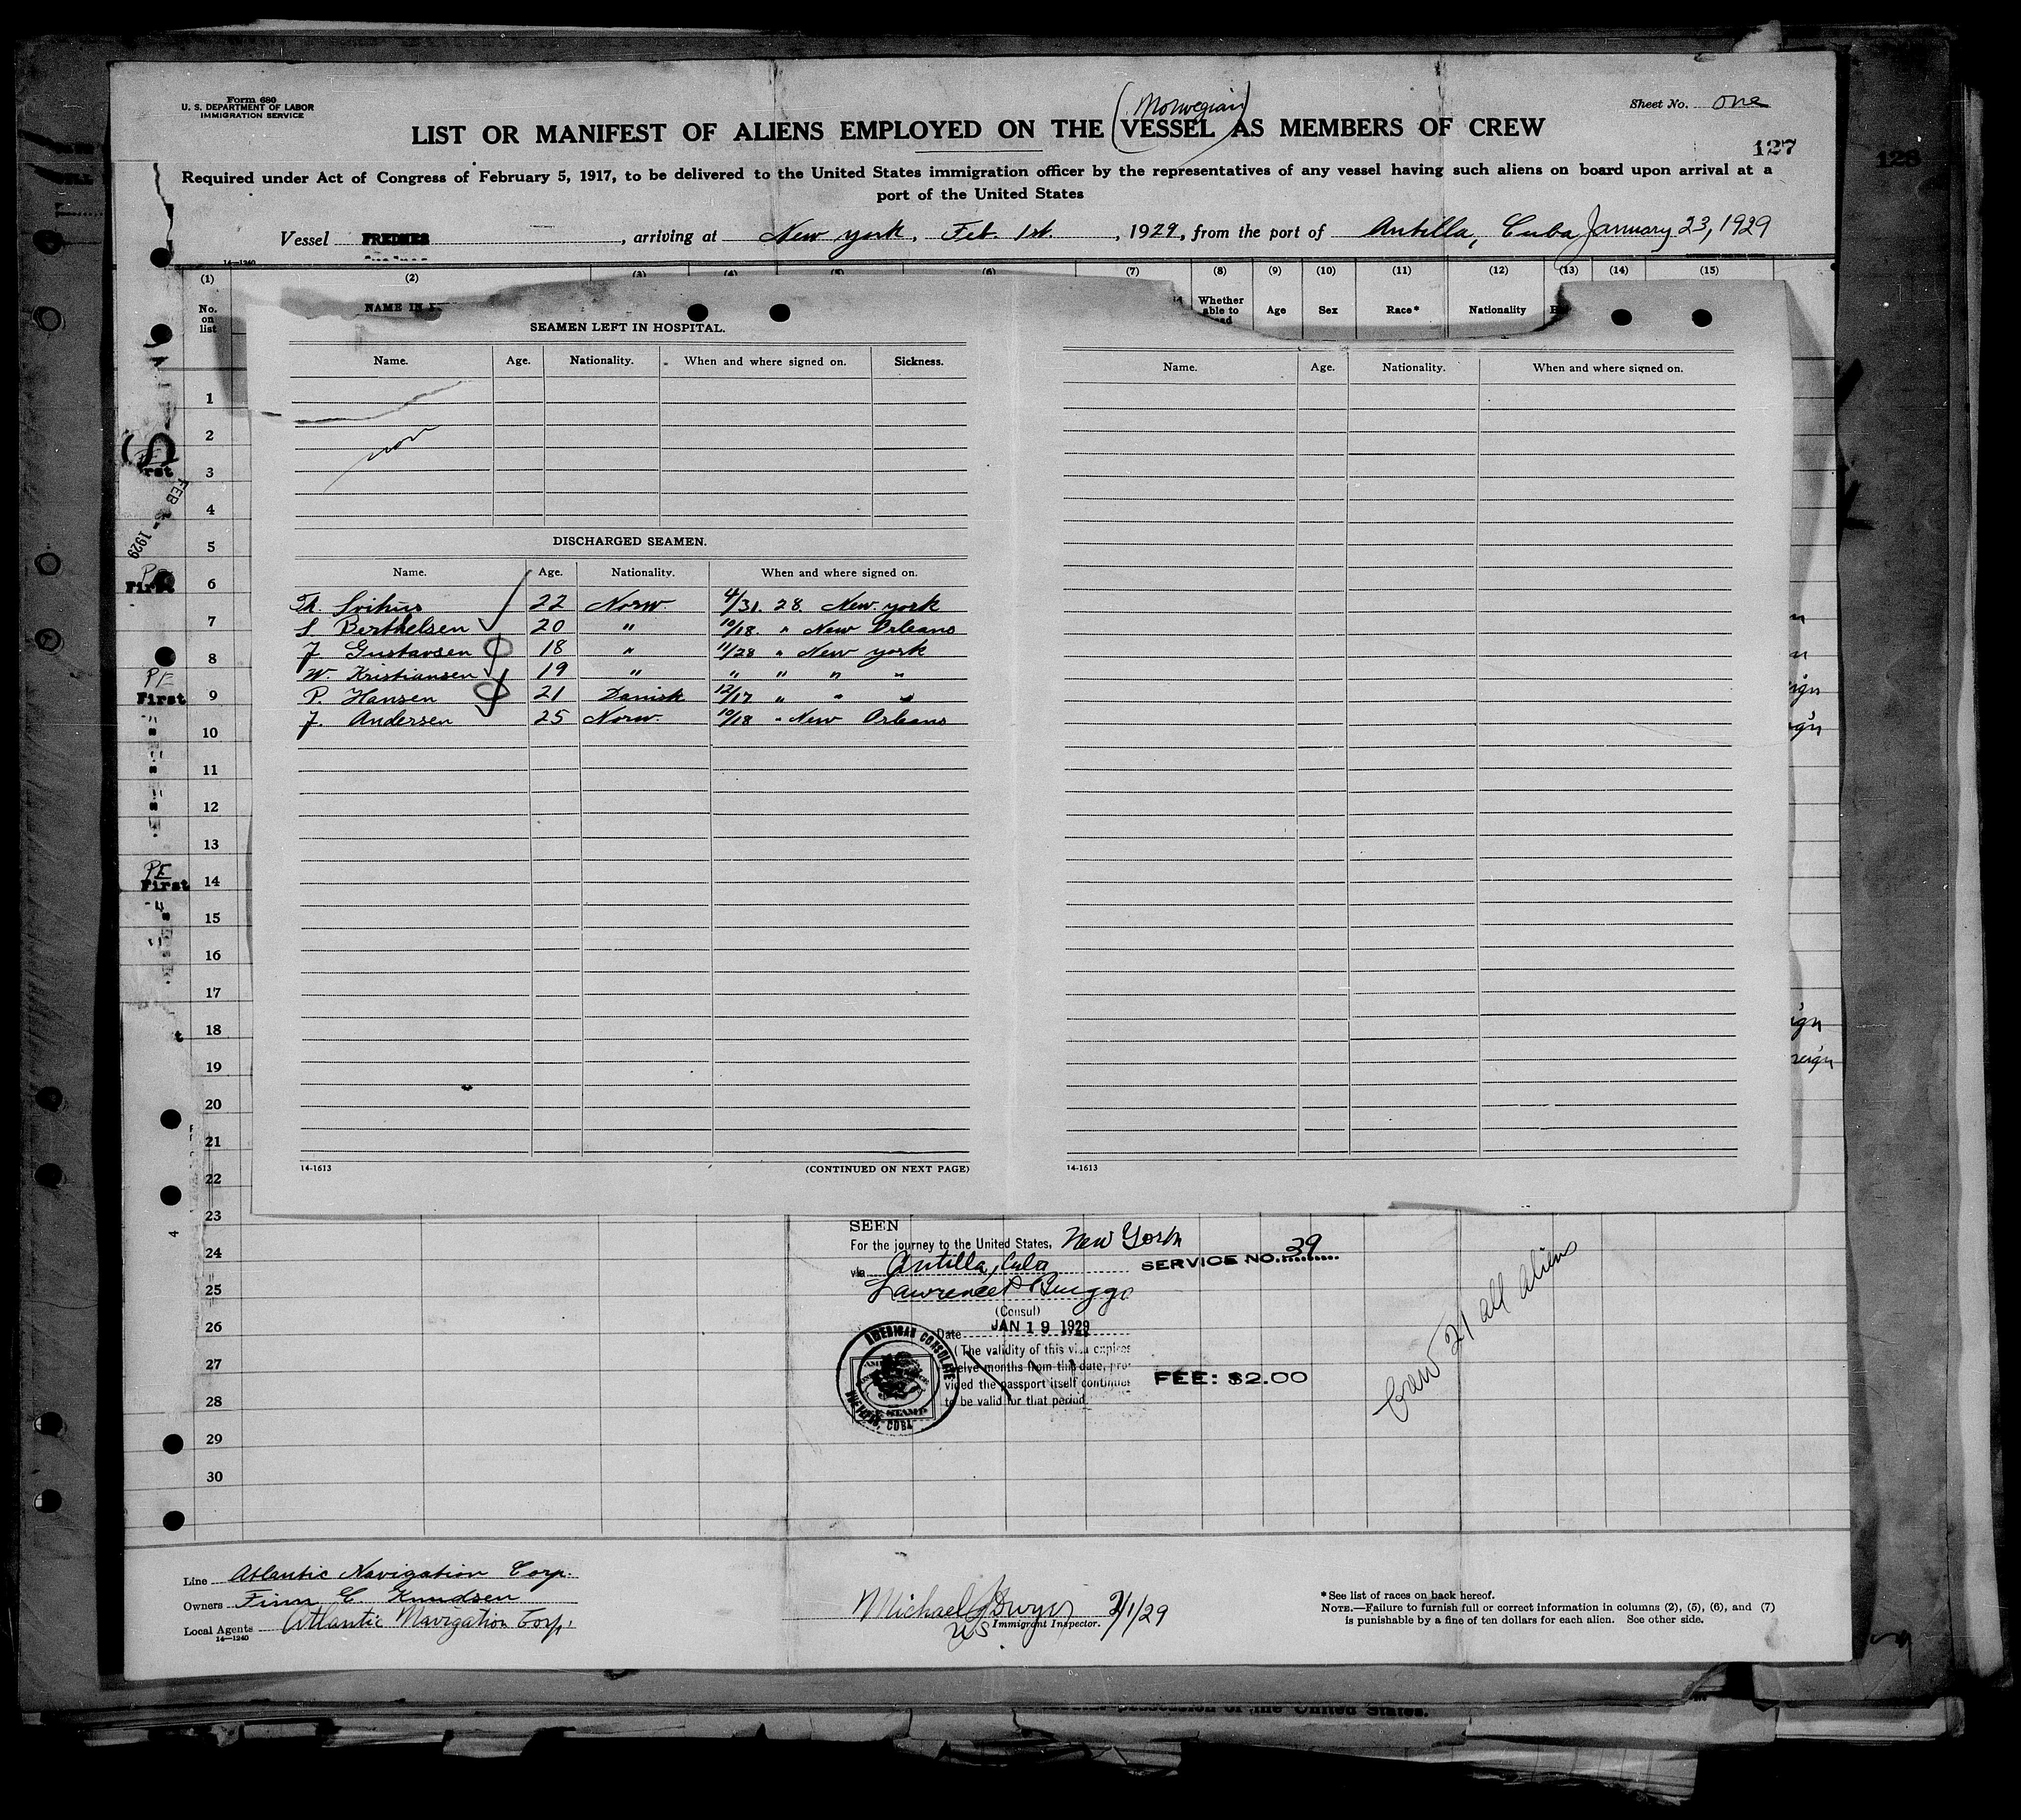 Form 680
U. S. DEPARTMENT OF LABOR
IMMIGRATION SERVICE
Sheet No. one
(Norwegian)
LIST OR MANIFEST OF ALIENS EMPLOYED ON THE VESSEL AS MEMBERS OF CREW
127
128
Required under Act of Congress of February 5, 1917, to be delivered to the United States immigration officer by the representatives of any vessel having such aliens on board upon arrival at a
port of the United States
Vessel FREDNES, arriving at New york, Feb. 1st., 1929, from the port of Antilla, Cuba January 23, 1929
14—1240
(1) (2) (3) (4) (5) (6) (7) (8) (9) (10) (11) (12) (13) (14) (15)
No. on list
NAME IN
Whether able to
Age Sex Race* Nationality
SEAMEN LEFT IN HOSPITAL.
Name. Age. Nationality. When and where signed on. Sickness.
Name. Age. Nationality. When and where signed on.
DISCHARGED SEAMEN.
Name. Age. Nationality. When and where signed on.
22 Norw 4/31. 28. New york
S Berthelsen 20 " 10/18. " New Orleans
J. Gustavsen 18 " 11/28 " New york
W. Kristiansen 19 " " " " "
P. Hansen 21 Danish 12/17 " " "
J. Andersen 25 Norw. 10/18 " New Orleans
14-1613 (CONTINUED ON NEXT PAGE)
14-1613
1
2
3
4
5
6
7
8
9
10
11
12
13
14
15
16
17
18
19
20
21
22
23
24
25
26
27
28
29
30
FEB 1929
First
PE
First
PE
First
SEEN
For the journey to the United States, New York
via Antilla, Cuba
SERVICE NO. 39
Lawrence P Briggs
(Consul)
Date JAN 19 1929
(The validity of this visa expires
twelve months from this date, pro-
vided the passport itself continues
to be valid for that period
FEE: $2.00
AMERICAN CONSULATE
CUBA
Crew 21 all aliens
Line Atlantic Navigation Corp.
Owners Finn C. Knudsen
Local Agents Atlantic Navigation Corp.
14—1240
Michael J Dwyer 2/1/29
US Immigrant Inspector.
*See list of races on back hereof.
NOTE.—Failure to furnish full or correct information in columns (2), (5), (6), and (7)
is punishable by a fine of ten dollars for each alien. See other side.
possession of the United States.